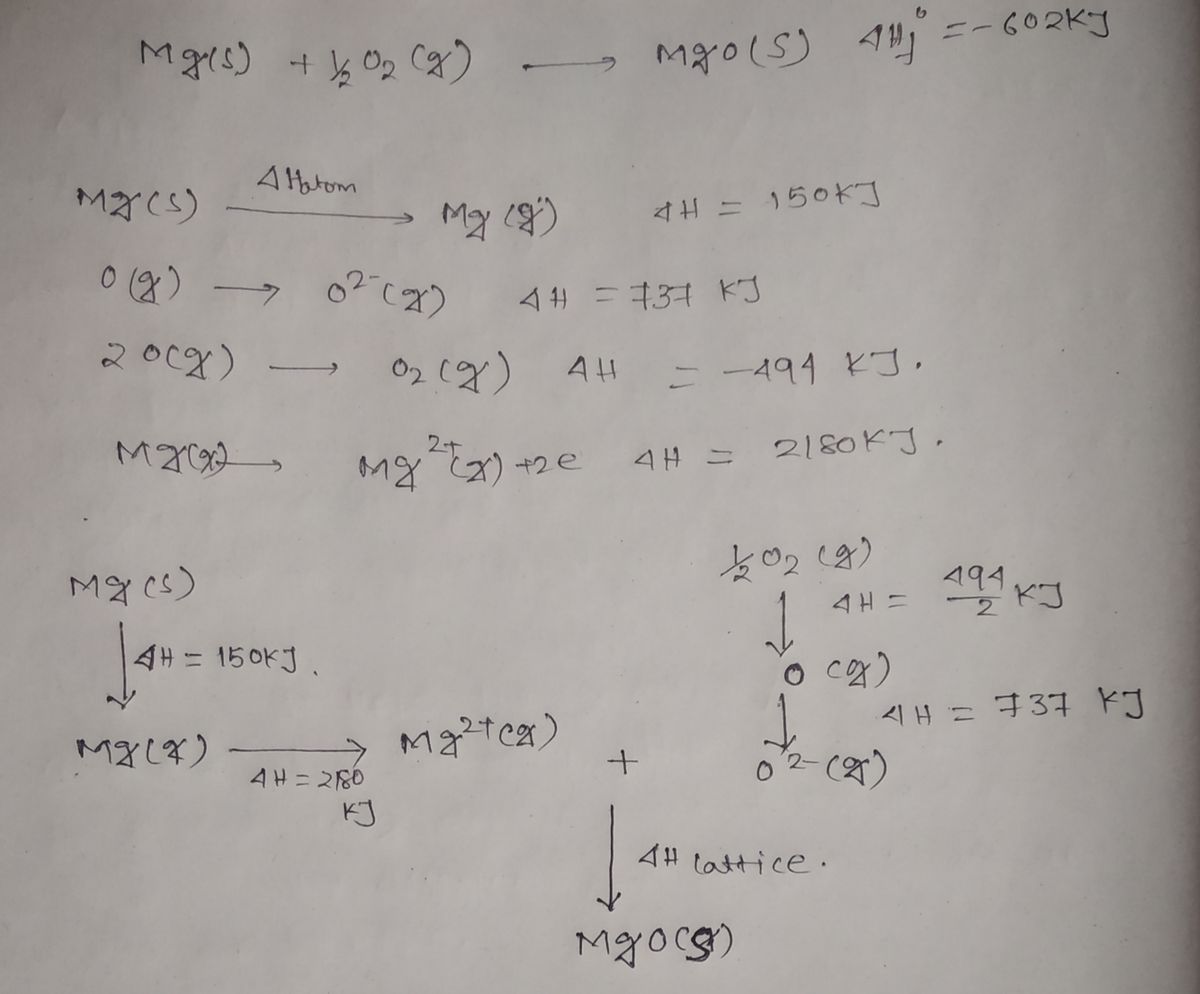 Mg(s) + ½ O2 (g) ⟶ MgO(S) ΔHf° = -602KJ
Mg(s) ⟶ Mg(g) ΔH = 150KJ
ΔHatom
O(g) ⟶ O2-(g) ΔH = 737 KJ
2 O(g) ⟶ O2(g) ΔH = -494 KJ.
Mg(g) ⟶ Mg2+(g) +2e ΔH = 2180KJ.
Mg(s)
↓ ΔH = 150KJ.
Mg(g) ⟶ Mg2+(g)
ΔH = 2180
KJ
+
½ O2 (g)
↓ ΔH = 494/2 KJ
O (g)
↓ ΔH = 737 KJ
O2-(g)
↓ ΔH lattice.
MgO(s)